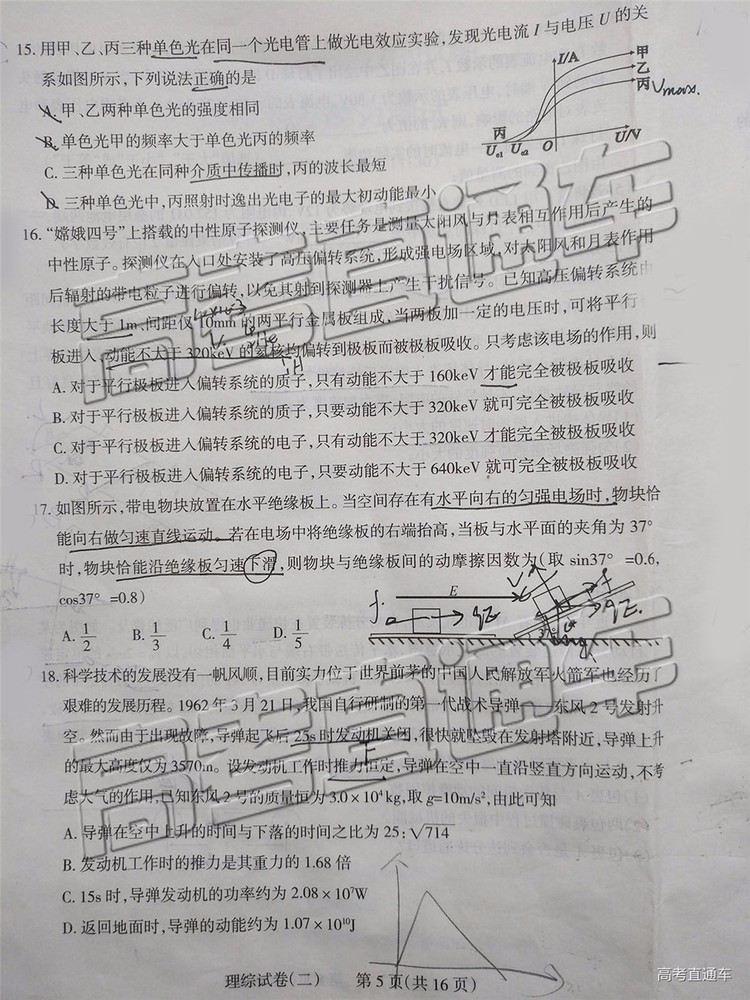 15. 用甲、乙、丙三种单色光在同一个光电管上做光电效应实验，发现光电流 I 与电压 U 的关
系如图所示，下列说法正确的是
A. 甲、乙两种单色光的强度相同
B. 单色光甲的频率大于单色光丙的频率
C. 三种单色光在同种介质中传播时，丙的波长最短
D. 三种单色光中，丙照射时逸出光电子的最大初动能最小
I/A
甲
乙
丙
Vmax.
丙
Uc1 Uc2 O U/V
16. “嫦娥四号”上搭载的中性原子探测仪，主要任务是测量太阳风与月表相互作用后产生的
中性原子. 探测仪在入口处安装了高压偏转系统，形成强电场区域，对太阳风和月表作用
后辐射的带电粒子进行偏转，以免其射到探测器上产生干扰信号。已知高压偏转系统由
长度大于 1m、间距仅 10mm 的两平行金属板组成，当两板加一定的电压时，可将平行
板进入、动能不大于 320keV 的氦核均偏转到极板而被极板吸收。只考虑该电场的作用，则
A. 对于平行极板进入偏转系统的质子，只有动能不大于 160keV 才能完全被极板吸收
B. 对于平行极板进入偏转系统的质子，只要动能不大于 320keV 就可完全被极板吸收
C. 对于平行极板进入偏转系统的电子，只有动能不大于 320keV 才能完全被极板吸收
D. 对于平行极板进入偏转系统的电子，只要动能不大于 640keV 就可完全被极板吸收
17. 如图所示，带电物块放置在水平绝缘板上。当空间存在有水平向右的匀强电场时，物块恰
能向右做匀速直线运动。若在电场中将绝缘板的右端抬高，当板与水平面的夹角为 37°
时，物块恰能沿绝缘板匀速下滑，则物块与绝缘板间的动摩擦因数为（取 sin37° =0.6,
cos37° =0.8）
E
f
qE
f
qE
mg
A. 1/2 B. 1/3 C. 1/4 D. 1/5
18. 科学技术的发展没有一帆风顺，目前实力位于世界前茅的中国人民解放军火箭军也经历了
艰难的发展历程。1962 年 3 月 21 日，我国自行研制的第一代战术导弹——东风 2 号发射升
空。然而由于出现故障，导弹起飞后 25s 时发动机关闭，很快就坠毁在发射塔附近，导弹上升
的最大高度仅为 3570m。设发动机工作时推力恒定，导弹在空中一直沿竖直方向运动，不考
虑大气的作用，已知东风 2 号的质量恒为 3.0 × 10⁴kg，取 g=10m/s²，由此可知
A. 导弹在空中上升的时间与下落的时间之比为 25:√714
B. 发动机工作时的推力是其重力的 1.68 倍
C. 15s 时，导弹发动机的功率约为 2.08 × 10⁷W
D. 返回地面时，导弹的动能约为 1.07 × 10¹⁰J
理综试卷（二） 第 5 页（共 16 页）
高考直通车
高考直通车
高考直通车